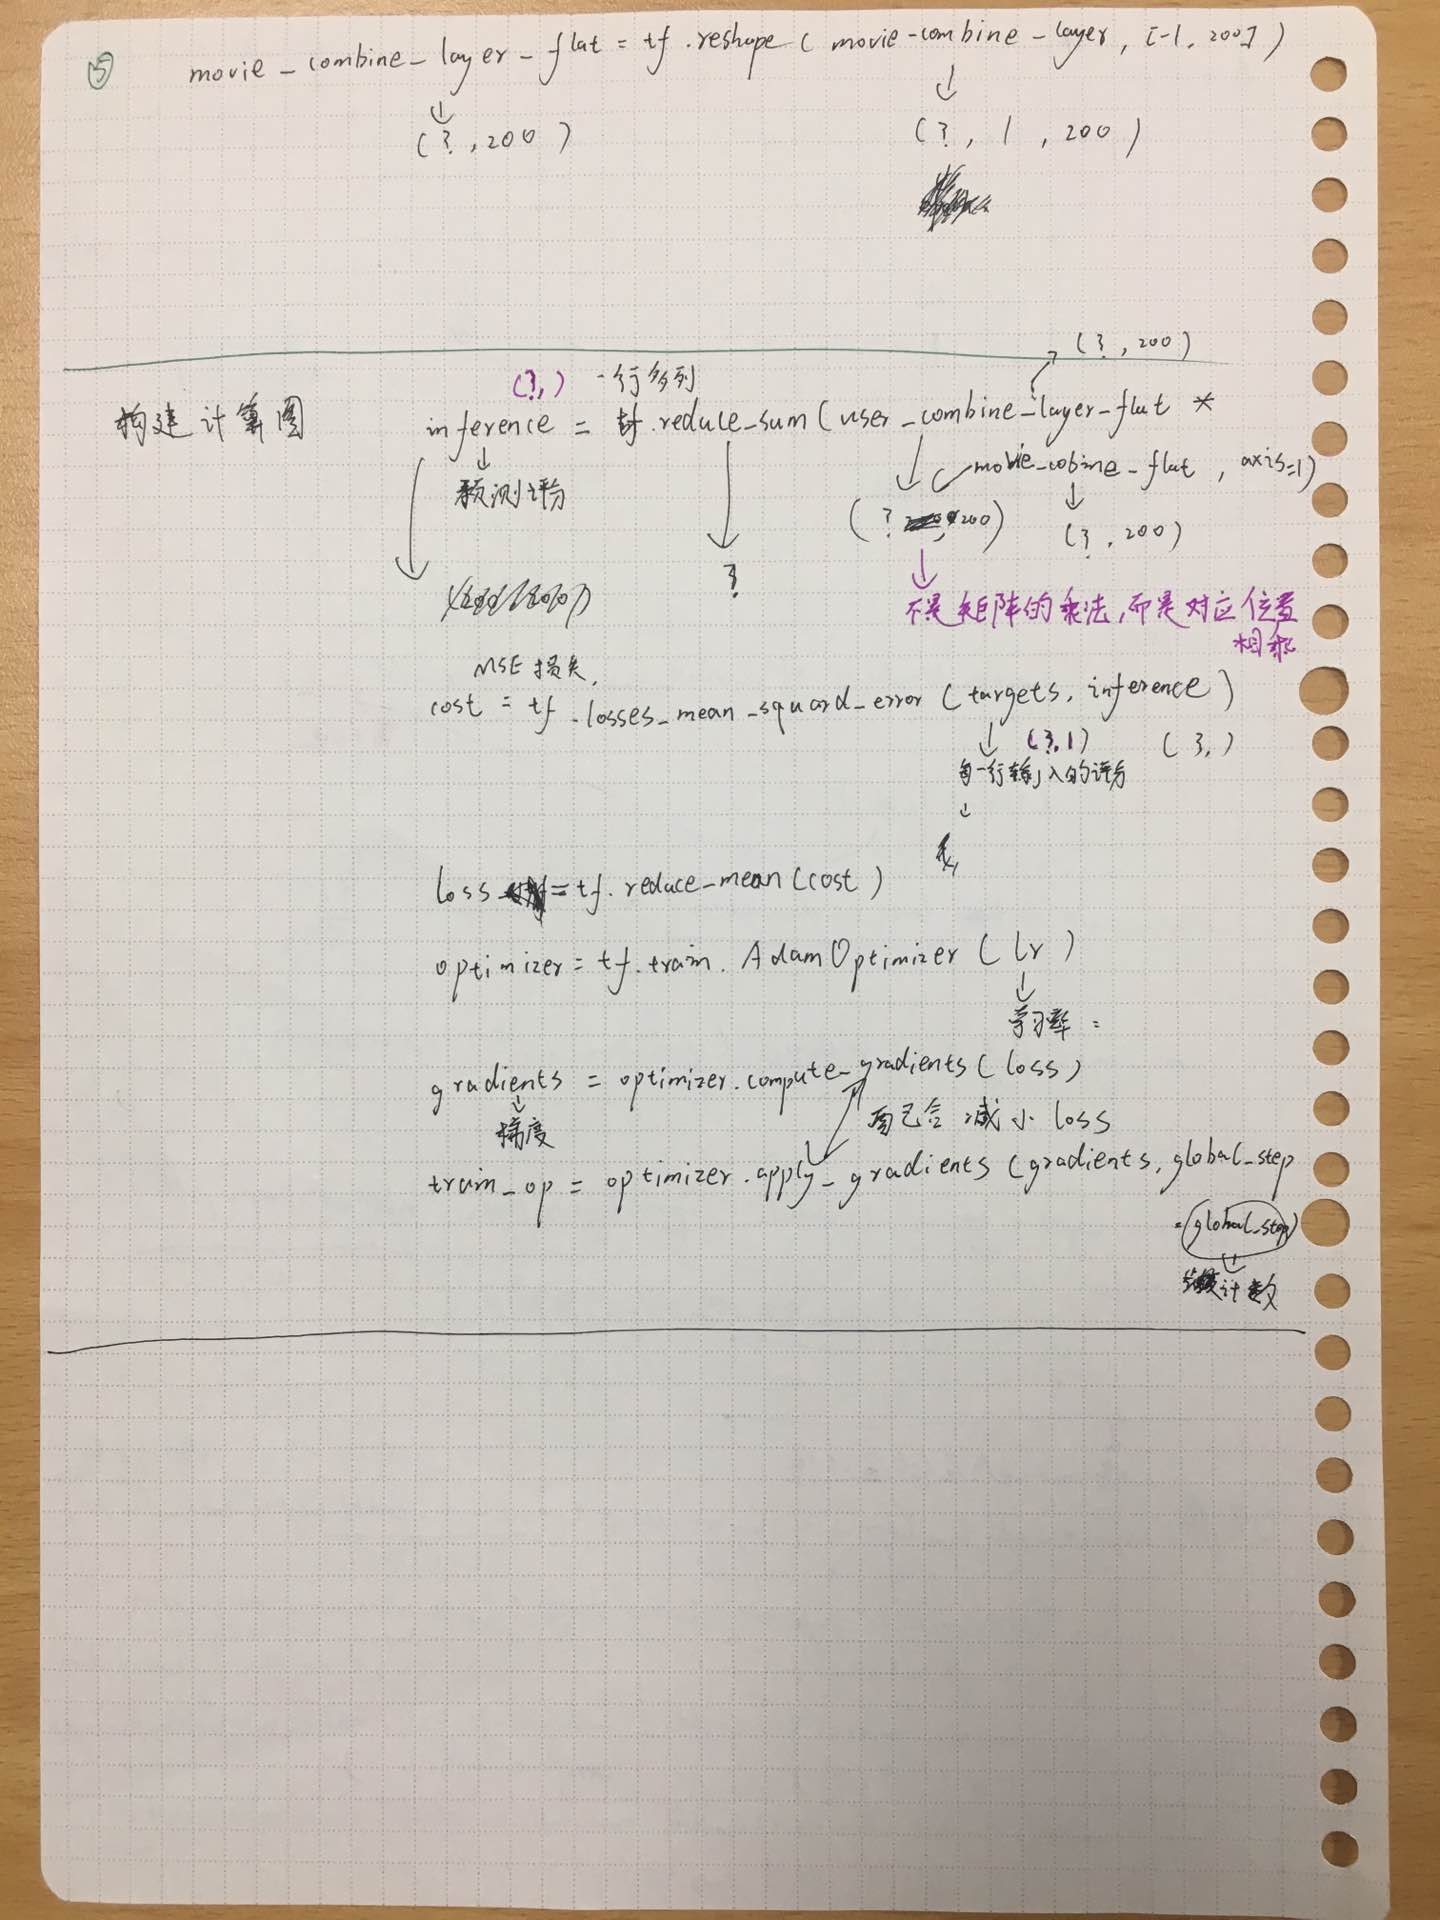 ⑤ movie_combine_layer_flat = tf.reshape(movie-combine_layer, [-1, 200])
(?, 200) (?, 1, 200)
(?, 200)
(?,) 一行多列
构建计算图 inference = tf.reduce_sum(user_combine_layer_flat *
movie_cobine_flat, axis=1)
预测评分
(? , 200) (?, 200)
?
不是矩阵的乘法,而是对应位置
相乘
MSE 损失,
cost = tf.losses_mean_squard_error (targets, inference)
(?,1) (?,)
每一行输入的评分
loss = tf.reduce_mean(cost)
optimizer = tf.train.AdamOptimizer(lr)
学习率:
gradients = optimizer.compute_gradients(loss)
梯度 自己会减小 loss
train_op = optimizer.apply_gradients(gradients, global_step
=global_step)
计数